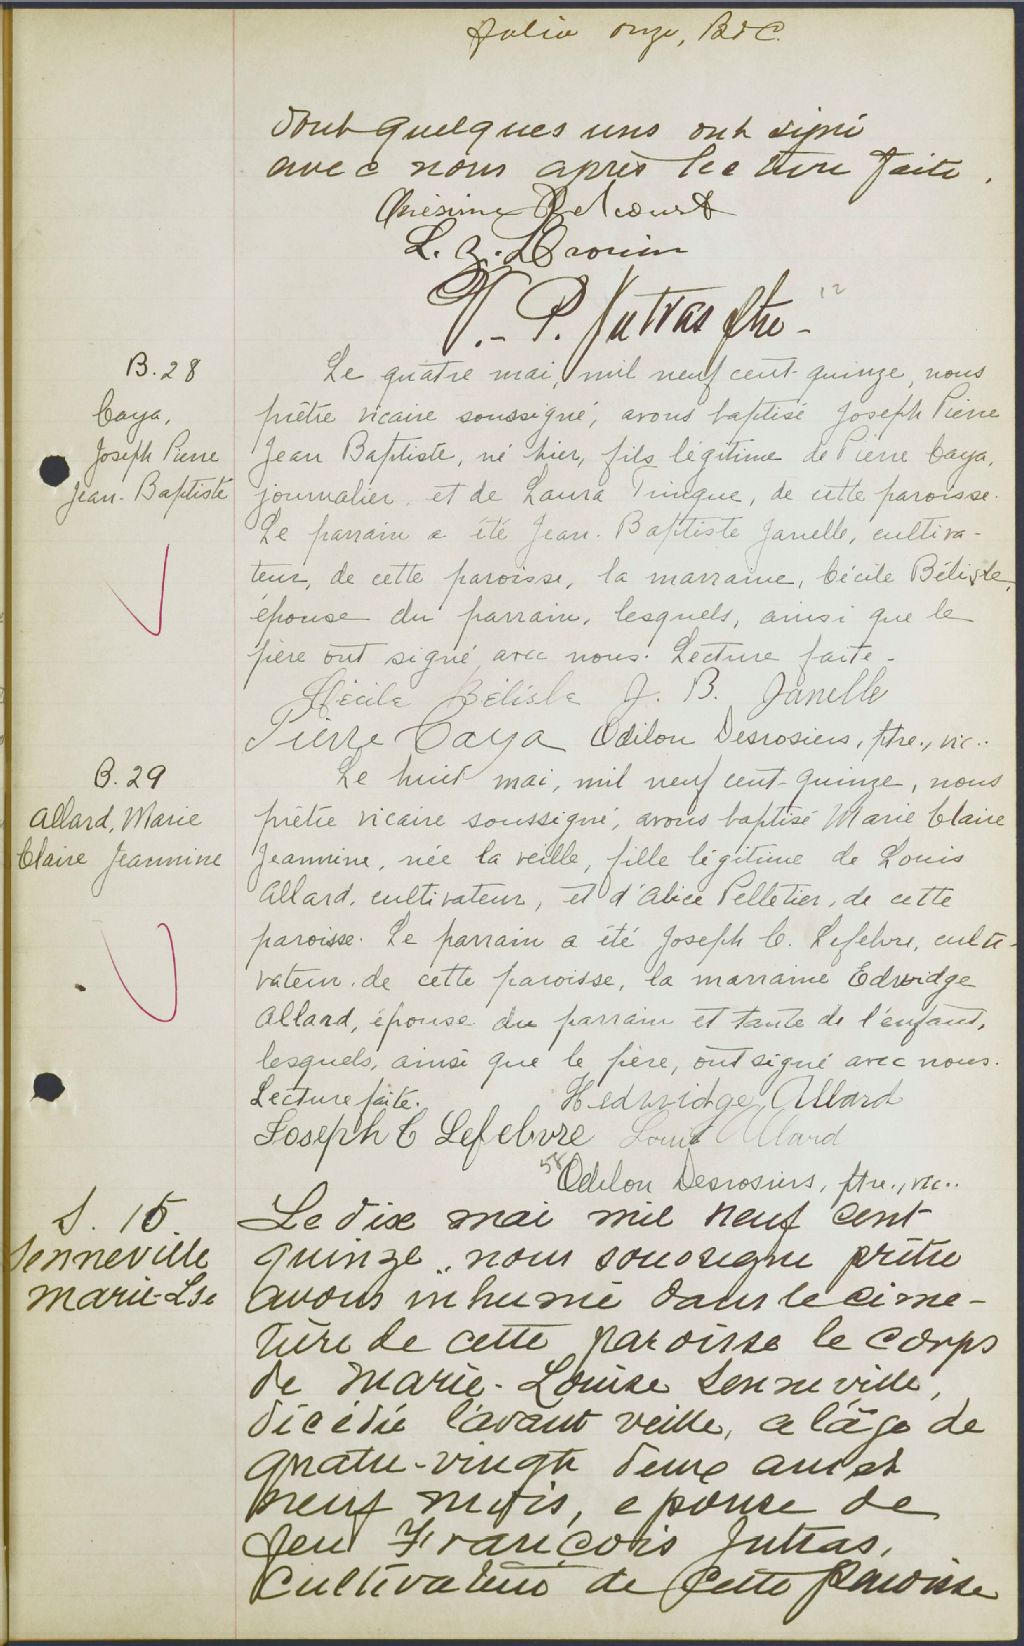 folio onze, B&C.
dont quelques uns ont signé
avec nous après lecture faite.
Onésime Belcourt
L. Z.
V.-P. Jutras ptre-
12
B. 28
Caya,
Joseph Pierre
Jean-Baptiste
Le quatre mai, mil neuf cent-quinze, nous
prêtre vicaire soussigné, avons baptisé Joseph Pierre
Jean Baptiste, né hier, fils légitime de Pierre Caya,
journalier, et de Laura Trinque, de cette paroisse.
Le parrain a été Jean-Baptiste Janelle, cultiva-
teur, de cette paroisse, la marraine, Cécile Bélisle,
épouse du parrain, lesquels, ainsi que le
père ont signé avec nous. Lecture faite.
Cécile Bélisle J. B. Janelle
Pierre Caya Odilon Desrosiers, ptre., vic..
B. 29
Allard, Marie
Claire Jeannine
Le huit mai, mil neuf cent-quinze, nous
prêtre vicaire soussigné, avons baptisé Marie Claire
Jeannine, née la veille, fille légitime de Louis
Allard, cultivateur, et d'Alice Pelletier, de cette
paroisse. Le parrain a été Joseph C. Lefebvre, culti-
vateur, de cette paroisse, la marraine Edwidge
Allard, épouse du parrain et tante de l'enfant,
lesquels, ainsi que le père, ont signé avec nous.
Lecture faite. Hedwidge Allard
Joseph C Lefebvre Louis Allard
58
Odilon Desrosiers, ptre., vic..
S. 15
Senneville
Marie-Lse
Le dix mai mil neuf cent
quinze, nous soussigné prêtre
avons inhumé dans le cime-
tière de cette paroisse le corps
de Marie-Louise Senneville,
décédée l'avant veille, a l'âge de
quatre-vingt deux ans et
neuf mois, epouse de
feu François Jutras,
cultivateur de cette paroisse